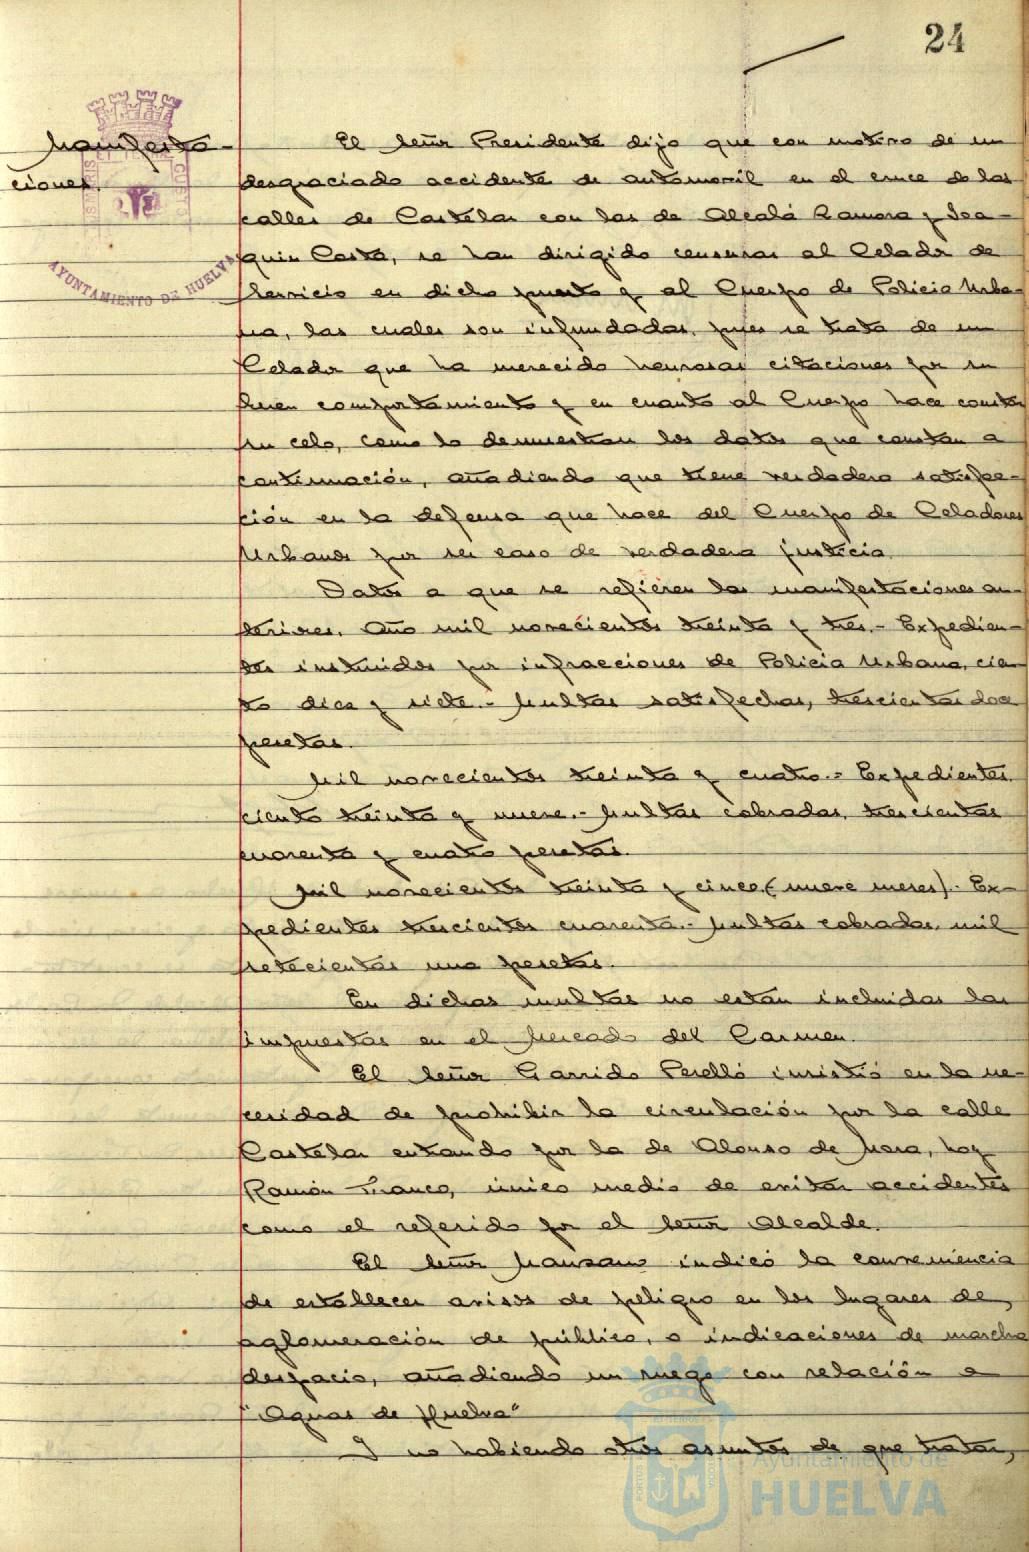 24
Manifesta-
ciones.
AYUNTAMIENTO DE HUELVA
El señor Presidente dijo que con motivo de un
desgraciado accidente de automovil en el cruce de las
calles de Castelar con las de Alcalá Zamora y Joa-
quin Costa, se han dirigido censuras al Celador de
servicio en dicho puesto y al Cuerpo de Policia Urba-
na, las cuales son infundadas, pues se trata de un
Celador que ha merecido honrosas citaciones por su
buen comportamiento y en cuanto al Cuerpo hace constar
su celo, como lo demuestran los datos que constan a
continuación, añadiendo que tiene verdadera satisfac-
ción en la defensa que hace del Cuerpo de Celadores
Urbanos por ser caso de verdadera justicia.
Datos a que se refieren las manifestaciones an-
teriores. Año mil novecientos treinta y tres.- Expedien-
tes instruidos por infracciones de Policia Urbana, cien-
to diez y siete.- Multas satisfechas, trescientas doce
pesetas.
Mil novecientos treinta y cuatro.- Expedientes
ciento treinta y nueve.- Multas cobradas, trescientas
cuarenta y cuatro pesetas.
Mil novecientos treinta y cinco (nueve meses).- Ex-
pedientes trescientos cuarenta.- Multas cobradas, mil
setecientas una pesetas.
En dichas multas no estan incluidas las
impuestas en el Mercado del Carmen.
El señor Garrido Perelló insistió en la ne-
cesidad de prohibir la circulación por la calle
Castelar entrando por la de Alonso de Mora, hoy
Ramón Franco, único medio de evitar accidentes
como el referido por el señor Alcalde.
El señor Manzano indicó la conveniencia
de establecer avisos de peligro en los lugares de
aglomeración de público, o indicaciones de marcha
despacio, añadiendo un ruego con relación a
"Aguas de Huelva"
Y no habiendo otros asuntos de que tratar,
Ayuntamiento de
HUELVA